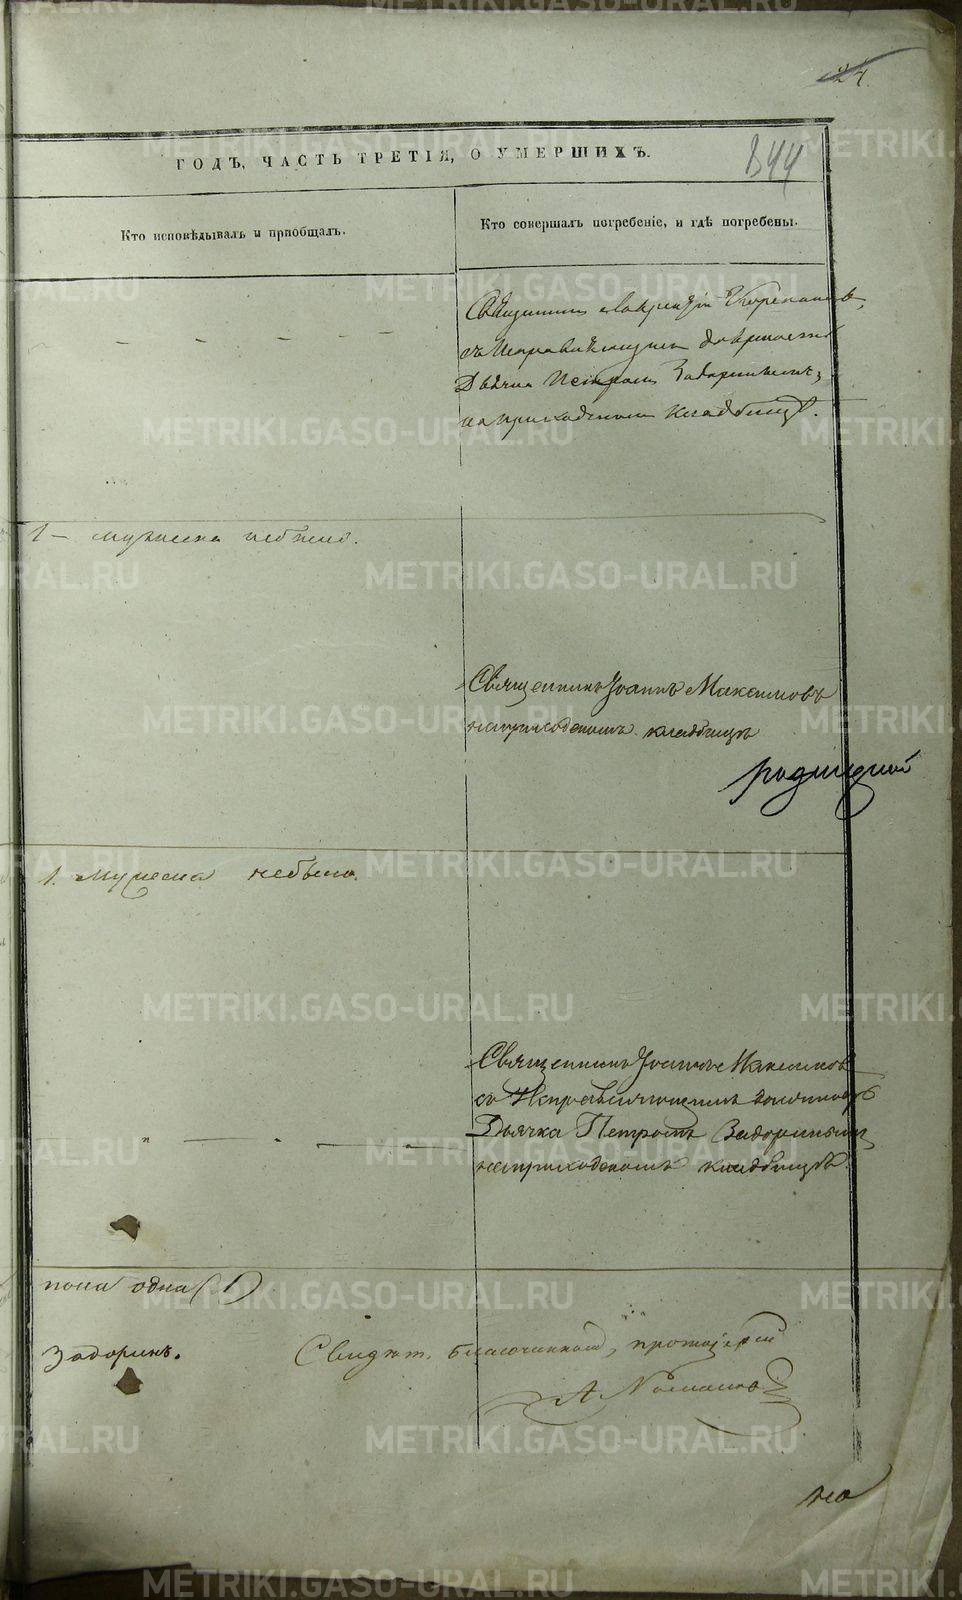 24.
844
ГОДЪ, ЧАСТЬ ТРЕТІЯ, О УМЕРШИХЪ.
Кто исповѣдывалъ и пріобщалъ.
Кто совершалъ погребеніе, и гдѣ погребены.
Священникъ
съ Исправляющимъ должность
Дьячка Петромъ Задоринымъ,
на приходскомъ кладбищѣ.
1 — мужеска небыло.
Священникъ Іоаннъ Максимовъ
на приходскомъ кладбищѣ
1. Мужеска небыло.
Священникъ Іоаннъ Максимовъ
съ Исправляющимъ должность
Дьячка Петромъ Задоринымъ
на приходскомъ кладбищѣ.
пола одна (1)
Задоринъ.
Свидѣт. благочинный, протоіерей
А.
METRIKI.GASO-URAL.RU